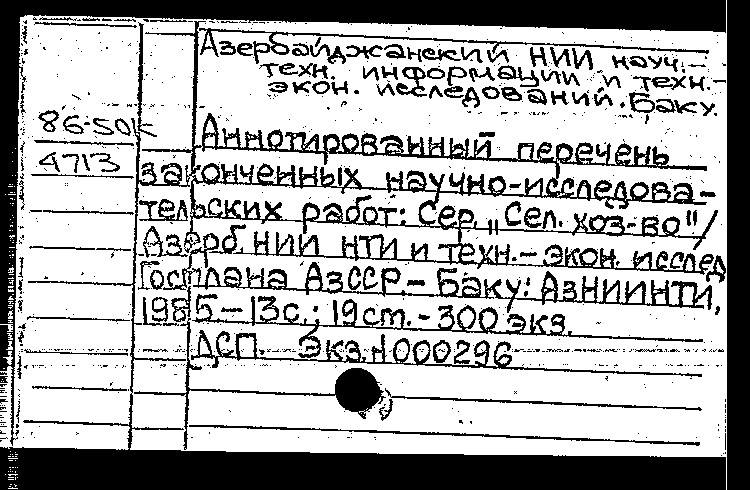 Азербайджанский НИИ науч.-
техн. информации и техн.-
экон. исследований. Баку.
86-50к
4713
Аннотированный перечень
законченных научно-исследова-
тельских работ: Сер. „Сел. хоз-во"/
Азерб. НИИ НТИ и техн.-экон. исслед
Госплана АзССР.- Баку: АзНИИНТИ,
1985-13с.; 19ст.-300 экз.
ДСП. Экз.N000296